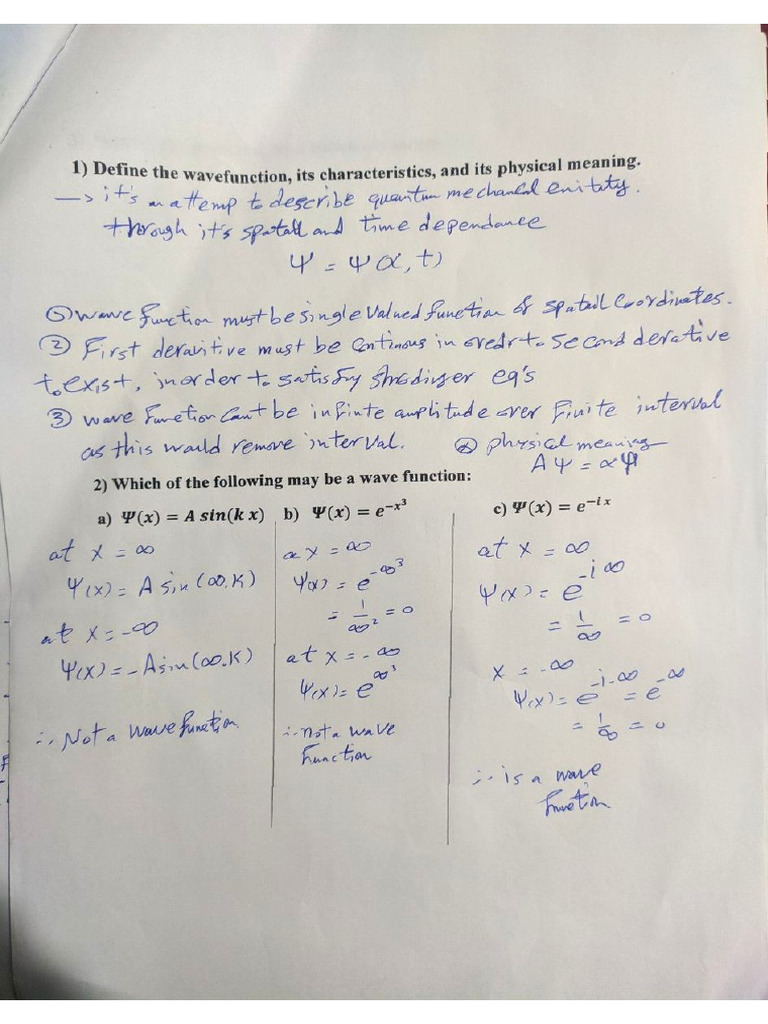 1) Define the wavefunction, its characteristics, and its physical meaning.
-> it's an attemp to describe quantum mechanical enitaty.
through it's spatall and time dependance
Ψ = Ψ(x, t)
① wave function must be single valued function of spatail Coordinates.
② First deravitive must be Continous in oredr to second derative
to exist, in order to satisfy shrodinger eq's
③ wave function can't be infinte amplitude over finite interval
as this would remove interval.
④ physical meaning
AΨ = αΨ
2) Which of the following may be a wave function:
a) Ψ(x) = A sin(k x) b) Ψ(x) = e^{-x^3} c) Ψ(x) = e^{-ix}
at x = ∞
Ψ(x) = A sin(∞.K)
at x = -∞
Ψ(x) = -A sin(∞.K)
∴ Not a wave function
a x = ∞
Ψ(x) = e^{-∞^3}
= 1/∞^2 = 0
at x = -∞
Ψ(x) = e^{∞^3}
∴ not a wave
function
at x = ∞
Ψ(x) = e^{-i∞}
= 1/∞ = 0
x = -∞
Ψ(x) = e^{-i-∞} = e^{-∞}
= 1/∞ = 0
∴ is a wave
function